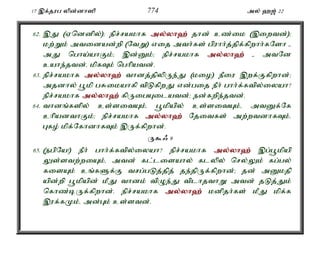 17 இக்தரப லின்னாஸி 774 அல் ஹஜ் 22
62. இது (ஏனெனில்): நிச்சயமாக அல்லாஹ் தான் உண்மை (இறைவன்);
மற்றும் அவனையன்றி (வேறு) எதை அவர்கள் பிரார்த்திக்கிறார்களோ -
அது பொய்யாகும்; இன்னும்; நிச்சயமாக அல்லாஹ் - அவனே
உயர்ந்தவன்; மிகவும் பெரியவன்.
63. நிச்சயமாக அல்லாஹ் வானத்திலிருந்து (மழை) நீரை இறக்குகிறான்;
அதனால் பூமி பசுமையாகி விடுகிறது என்பதை நீர் பார்க்கவில்லையா?
நிச்சயமாக அல்லாஹ் கிருபையுடையவன்; நன்கறிந்தவன்.
64. வானங்களில் உள்ளவையும், பூமியில் உள்ளவையும், அவனுக்கே
உரியனவாகும்; நிச்சயமாக அல்லாஹ் தேவைகள் அற்றவனாகவும்,
புகழ் மிக்கோனாகவும் இருக்கிறான்.
65. (நபியே!) நீர் பார்க்கவில்லையா? நிச்சயமாக அல்லாஹ் இப்பூமியி
லுள்ளவற்றையும், அவன் கட்டளையால் கடலில் செல்லும் கப்பல்
களையும் உங்களுக்கு வசப்படுத்தித் தந்திருக்கிறான்; தன் அனுமதி
யின்றி பூமியின் மீது வானம் விழுந்து விடாதவாறு அவன் தடுத்தும்
கொண்டிருக்கிறான். நிச்சயமாக அல்லாஹ் மனிதர்கள் மீது மிக்க
இரக்கமும், அன்பும் உள்ளவன்.